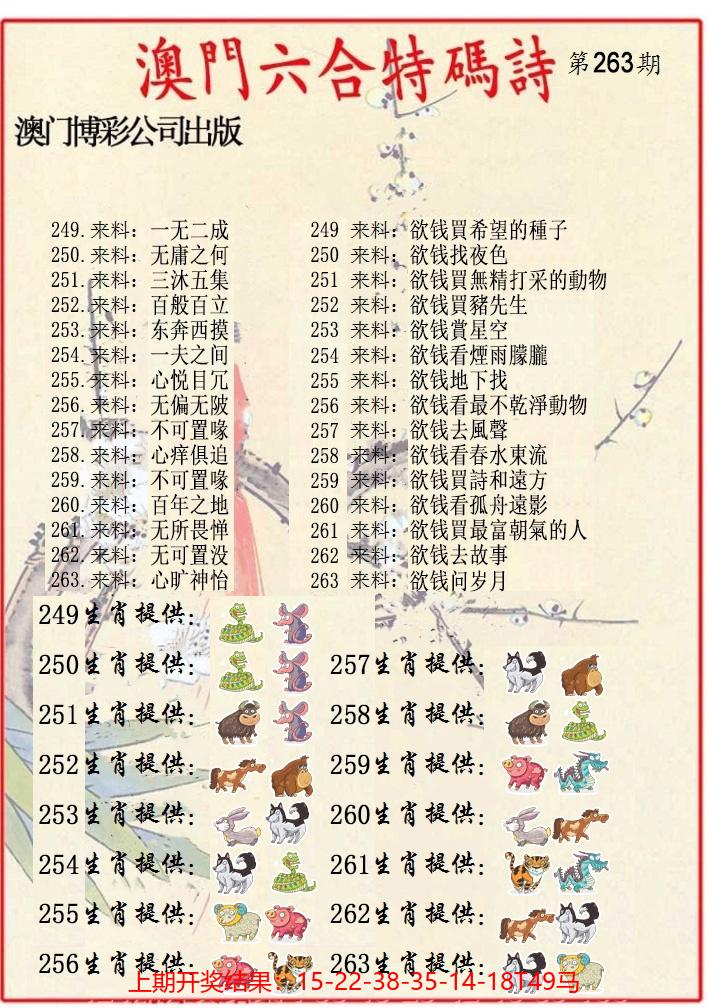 澳門六合特碼詩 第263期
澳门博彩公司出版
249.来料：一无二成 249 来料：欲钱買希望的種子
250.来料：无庸之何 250 来料：欲钱找夜色
251.来料：三沐五集 251 来料：欲钱買無精打采的動物
252.来料：百般百立 252 来料：欲钱買豬先生
253.来料：东奔西摸 253 来料：欲钱賞星空
254.来料：一夫之间 254 来料：欲钱看煙雨朦朧
255.来料：心悦目冗 255 来料：欲钱地下找
256.来料：无偏无陂 256 来料：欲钱看最不乾淨動物
257.来料：不可置喙 257 来料：欲钱去風聲
258.来料：心痒俱追 258 来料：欲钱看春水東流
259.来料：不可置喙 259 来料：欲钱買詩和遠方
260.来料：百年之地 260 来料：欲钱看孤舟遠影
261.来料：无所畏惮 261 来料：欲钱買最富朝氣的人
262.来料：无可置没 262 来料：欲钱去故事
263.来料：心旷神怡 263 来料：欲钱问岁月
249生肖提供：
250生肖提供： 257生肖提供：
251生肖提供： 258生肖提供：
252生肖提供： 259生肖提供：
253生肖提供： 260生肖提供：
254生肖提供： 261生肖提供：
255生肖提供： 262生肖提供：
256生肖提供： 263生肖提供：
上期开奖结果：15-22-38-35-14-18T49马